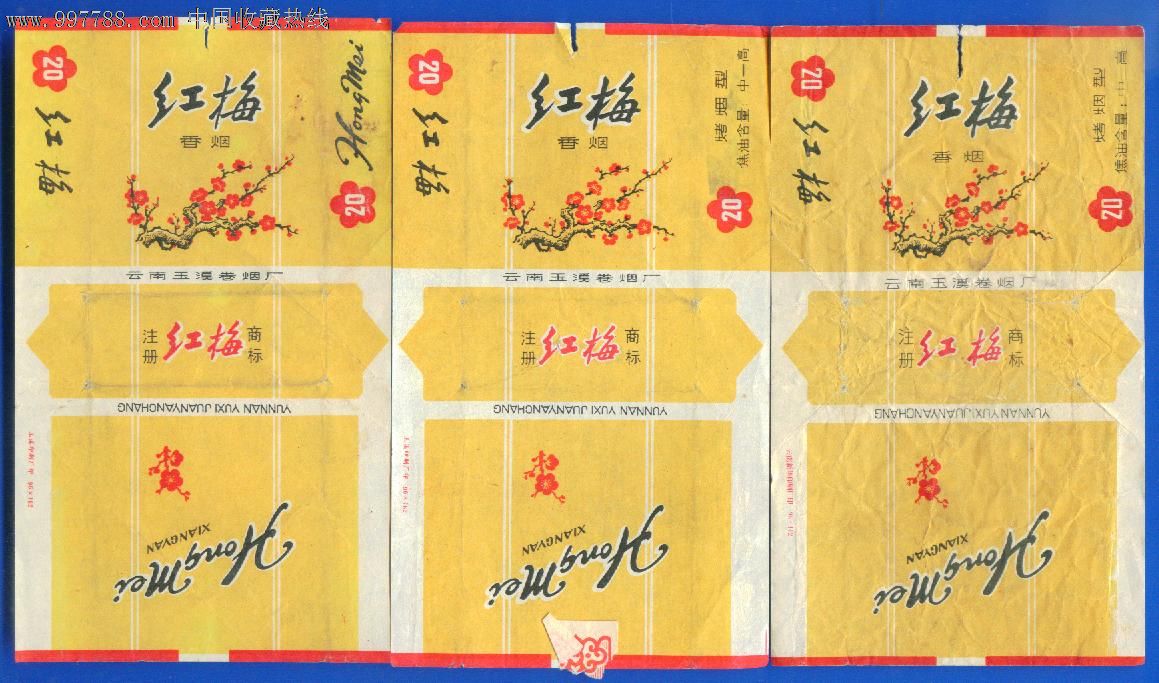 www.997788.com 中国收藏热线
20
红梅
Hong Mei
红梅
香烟
20
云南玉溪卷烟厂
注册
红梅
商标
YUNNAN YUXI JUANYANCHANG
Hong Mei
XIANGYAN
20
红梅
烤烟型
焦油含量:中一高
红梅
香烟
20
云南玉溪卷烟厂
注册
红梅
商标
YUNNAN YUXI JUANYANCHANG
Hong Mei
XIANGYAN
20
红梅
烤烟型
焦油含量:中一高
红梅
香烟
20
云南玉溪卷烟厂
注册
红梅
商标
YUNNAN YUXI JUANYANCHANG
Hong Mei
XIANGYAN